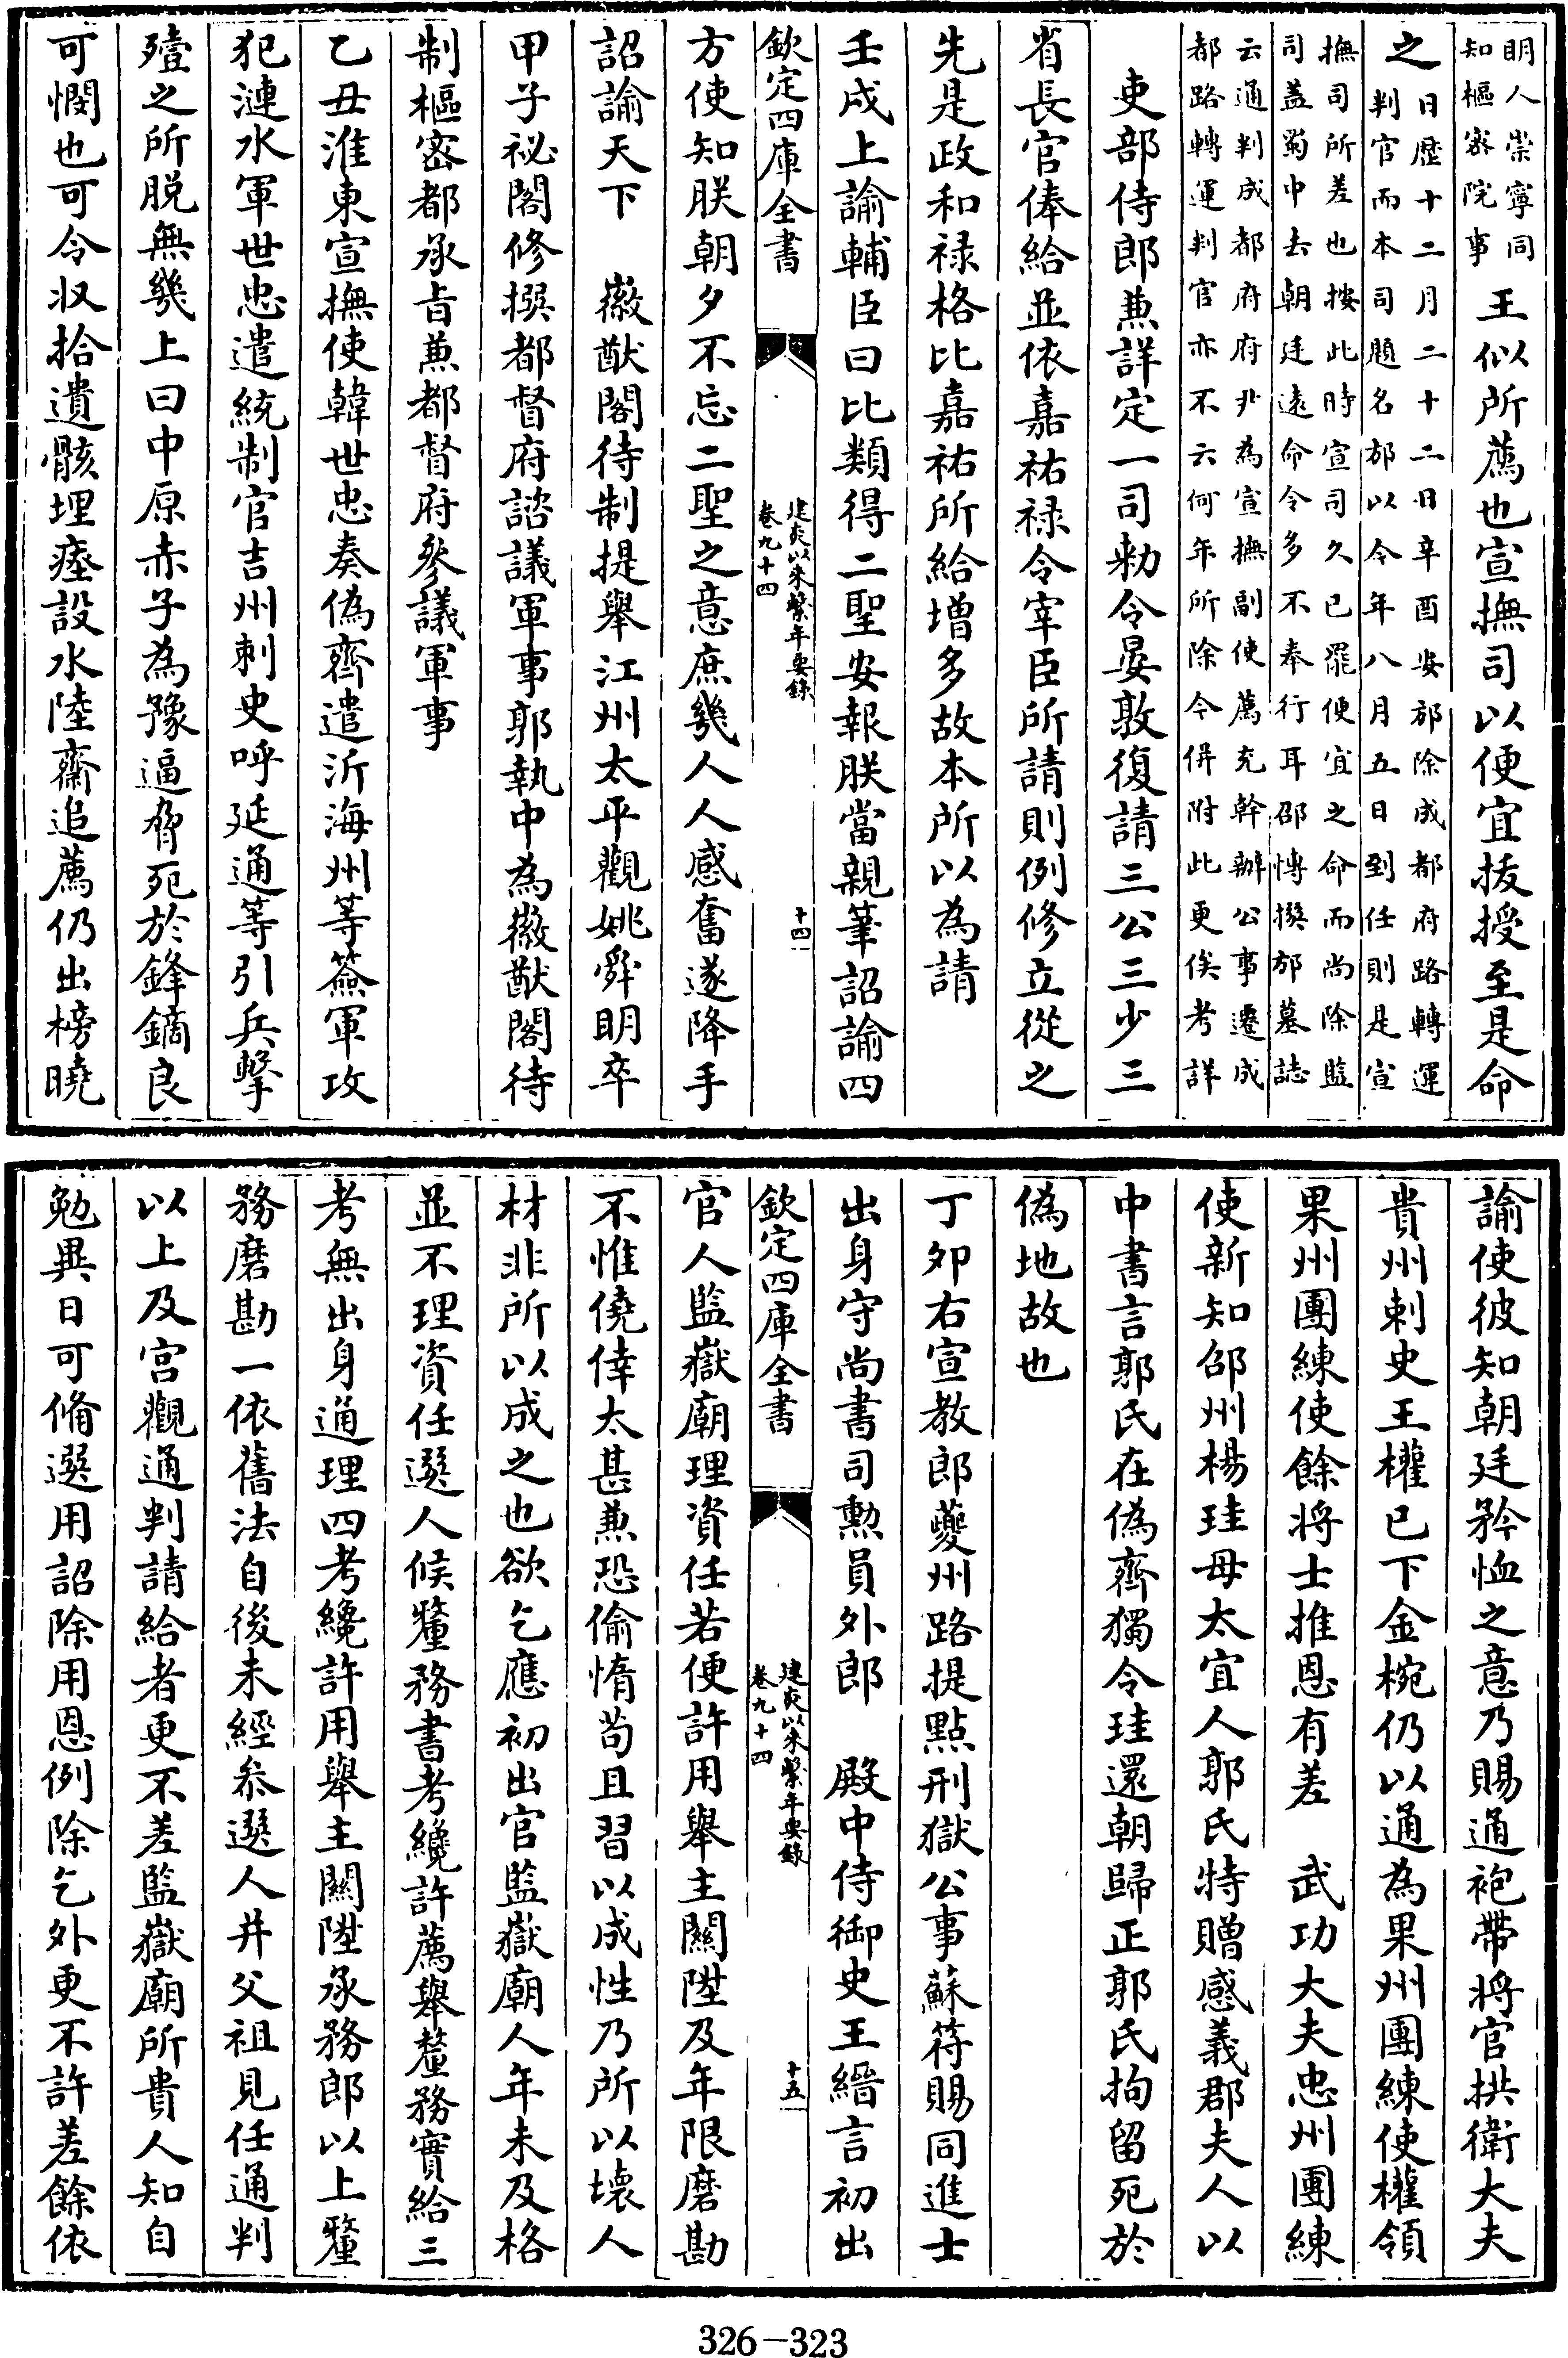 明人崇寧同
知樞密院事
王似所薦也宣撫司以便宜拔授至是命
之
日歴十二月二十二日辛酉安邡除成都府路轉運
判官而本司題名邡以今年八月五日到任則是宣
撫司所差也按此時宣司久已罷便宜之命而尚除監
司盖蜀中去朝廷逺命令多不奉行耳邵愽撰邡墓誌
云通判成都府府尹為宣撫副使薦充幹辦公事遷成
都路轉運判官亦不云何年所除今併附此更俟考詳
吏部侍郎兼詳定一司勅令晏敦復請三公三少三
省長官俸給並依嘉祐禄令宰臣所請則例修立從之
先是政和禄格比嘉祐所給増多故本所以為請
壬戌上諭輔臣曰比類得二聖安報朕當親筆詔諭四
欽定四庫全書
建炎以來繫年要錄
卷九十四
十四
方使知朕朝夕不忘二聖之意庶幾人人感奮遂降手
詔諭天下 徽猷閣待制提舉江州太平觀姚舜明卒
甲子祕閣修撰都督府諮議軍事郭執中為徽猷閣待
制樞密都承旨兼都督府參議軍事
乙丑淮東宣撫使韓世忠奏偽齊遣沂海州等簽軍攻
犯漣水軍世忠遣統制官吉州刺史呼延通等引兵擊
殪之所脱無幾上曰中原赤子為豫逼脅死於鋒鏑良
可憫也可令收拾遺骸埋瘞設水陸齋追薦仍出榜曉
諭使彼知朝廷矜恤之意乃賜通袍帶將官拱衛大夫
貴州刺史王權已下金椀仍以通為果州團練使權領
果州團練使餘將士推恩有差 武功大夫忠州團練
使新知邵州楊珪母太宜人郭氏特贈感義郡夫人以
中書言郭氏在偽齊獨令珪還朝歸正郭氏拘留死於
偽地故也
丁夘右宣教郎夔州路提點刑獄公事蘇符賜同進士
出身守尚書司勲員外郎 殿中侍御史王縉言初出
欽定四庫全書
建炎以來繫年要錄
卷九十四
十五
官人監嶽廟理資任若便許用舉主關陞及年限磨勘
不惟僥倖太甚兼恐偷惰苟且習以成性乃所以壊人
材非所以成之也欲乞應初出官監嶽廟人年未及格
並不理資任選人候釐務書考纔許薦舉釐務實給三
考無出身通理四考纔許用舉主關陞承務郎以上釐
務磨勘一依舊法自後未經叅選人并父祖見任通判
以上及宫觀通判請給者更不差監嶽廟所貴人知自
勉異日可備選用詔除用恩例除乞外更不許差餘依
326-323